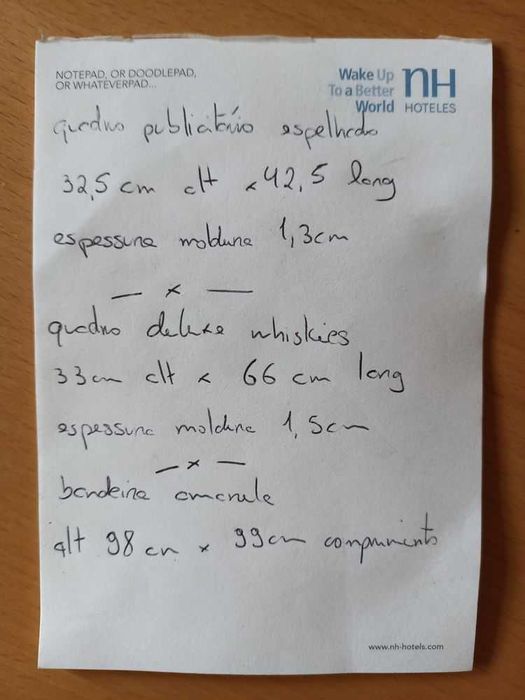 NOTEPAD, OR DOODLEPAD,
OR WHATEVERPAD...
Wake Up
To a Better
World
nH
HOTELES
quadro publicitário espelhado
32,5 cm alt x 42,5 long
espessura moldura 1,3cm
— x —
quadro deluxe whiskies
33cm alt x 66 cm long
espessura moldura 1,5cm
— x —
bandeira amarela
alt 98 cm x 99cm comprimento
www.nh-hotels.com